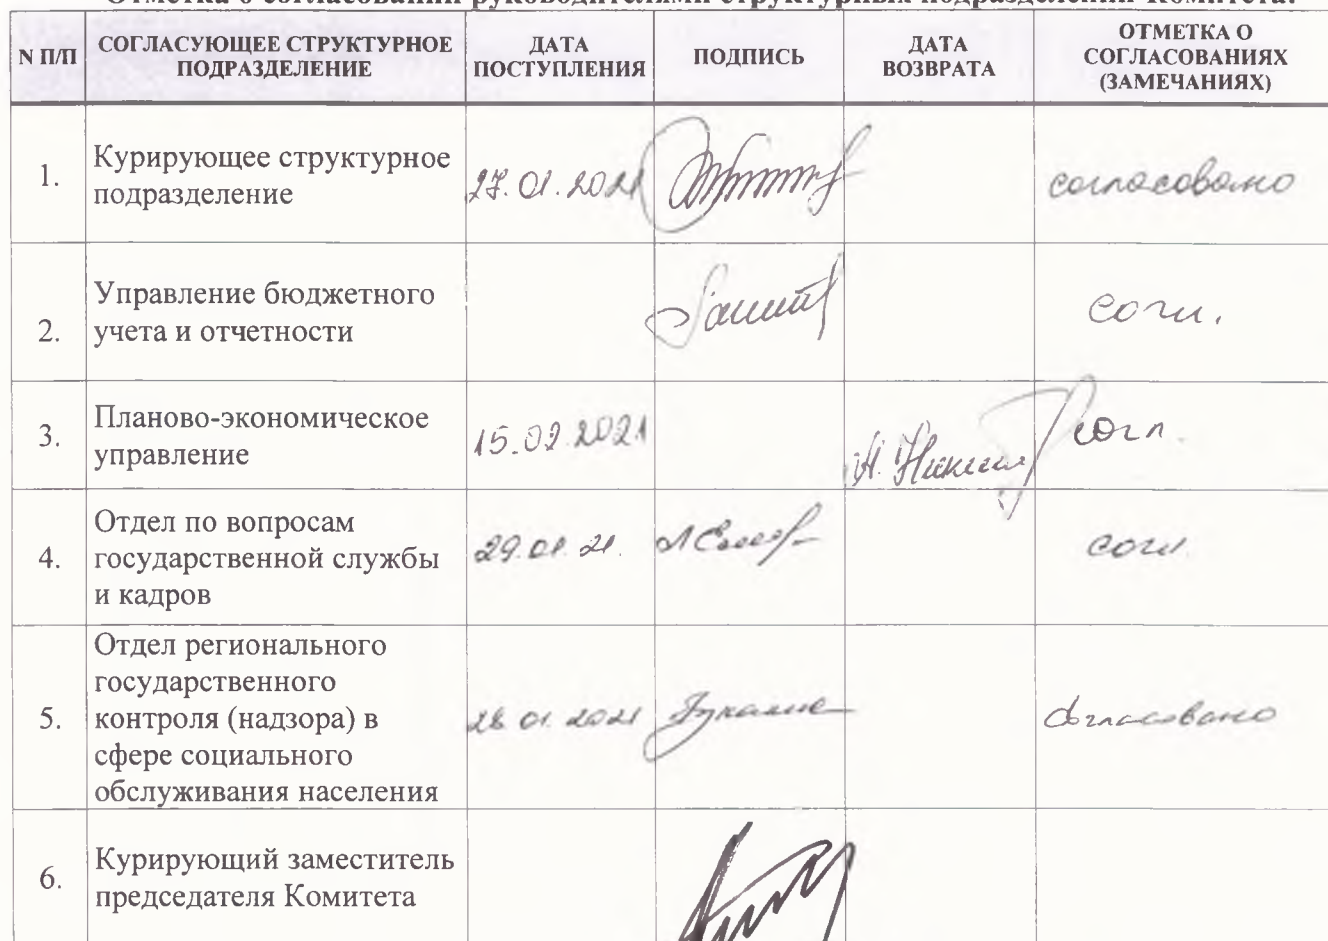 Отметка о согласовании руководителями структурных подразделений Комитета:
N П/П
СОГЛАСУЮЩЕЕ СТРУКТУРНОЕ
ПОДРАЗДЕЛЕНИЕ
ДАТА
ПОСТУПЛЕНИЯ
ПОДПИСЬ
ДАТА
ВОЗВРАТА
ОТМЕТКА О
СОГЛАСОВАНИЯХ
(ЗАМЕЧАНИЯХ)
1.
Курирующее структурное
подразделение
27.01.2021
согласовано
2.
Управление бюджетного
учета и отчетности
согл.
3.
Планово-экономическое
управление
15.02.2021
согл.
4.
Отдел по вопросам
государственной службы
и кадров
29.01.21.
согл.
5.
Отдел регионального
государственного
контроля (надзора) в
сфере социального
обслуживания населения
28.01.2021
согласовано
6.
Курирующий заместитель
председателя Комитета